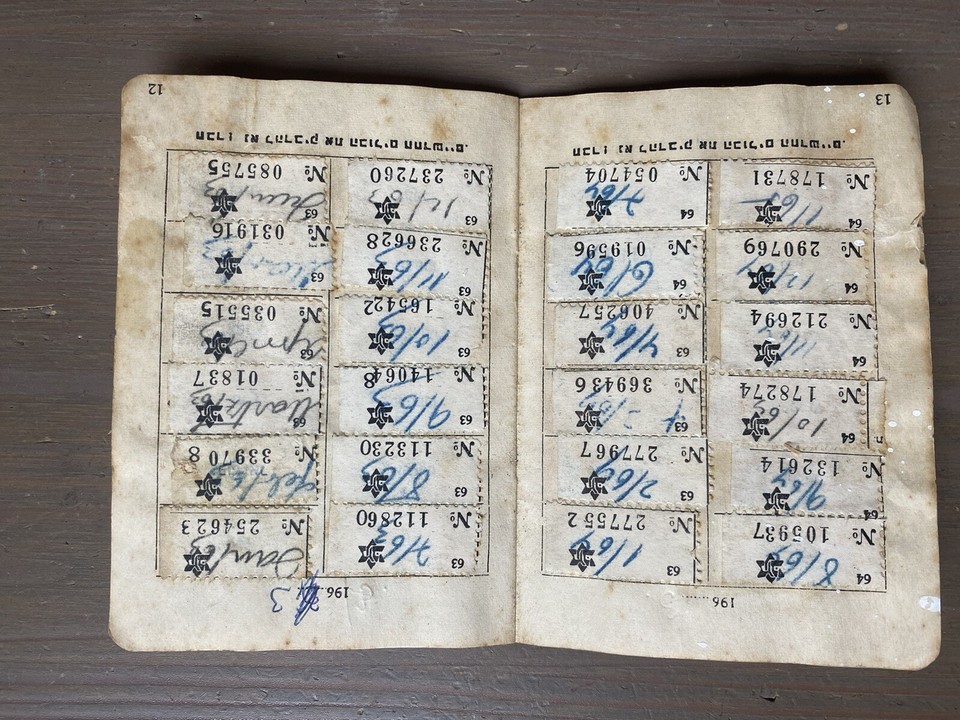 196 3
№ 254623
63
Jan/63
№ 339708
Feb/63
№ 01837
63
Martz/63
№ 035515
63
№ 031916
63
№ 085755
63
№ 112860
63
7/63
№ 113230
63
8/63
№ 140648
63
9/63
№ 165422
63
10/63
№ 236628
63
11/63
№ 237260
63
12/63
חבר! נא להדביק את הבולים החדשיים.
12
196
№ 277552
63
1/64
№ 277967
63
2/64
№ 369436
63
№ 406257
63
4/64
№ 019596
64
6/64
№ 054704
64
7/64
№ 105937
64
8/64
№ 132614
64
9/64
№ 178274
64
10/64
№ 212694
64
11/64
№ 290769
64
12/64
№ 178731
64
חבר! נא להדביק את הבולים החדשיים.
13